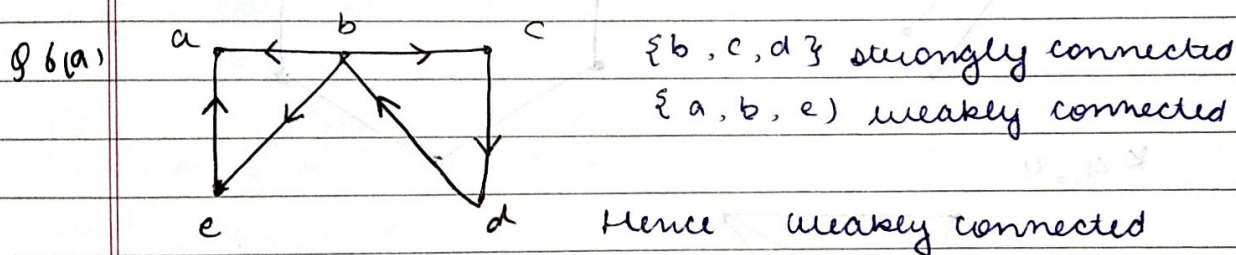 Q 6(a)
a b c
e d
{b, c, d} strongly connected
{a, b, e) weakly connected
Hence weakly connected